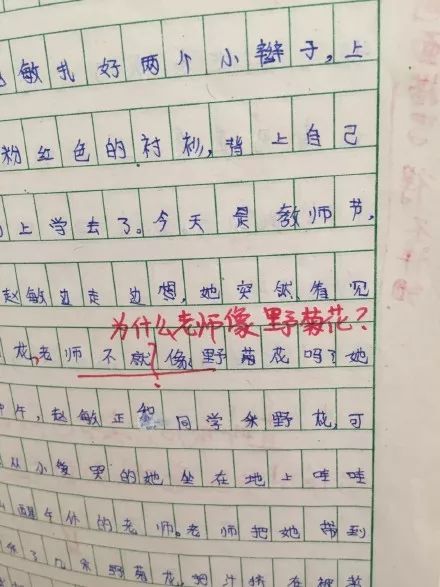 敏扎好两个小辫子,上
粉红色的衬衫,背上自己
上学去了。今天是教师节,
赵敏边走边想,她突然看见
为什么老师像野菊花?
花,老师不就像野菊花吗?她
中午,赵敏正和同学采野花,可
从小爱哭的她坐在地上哇哇
醒午休的老师。老师把她带到
了几朵野菊花,把汁挤在